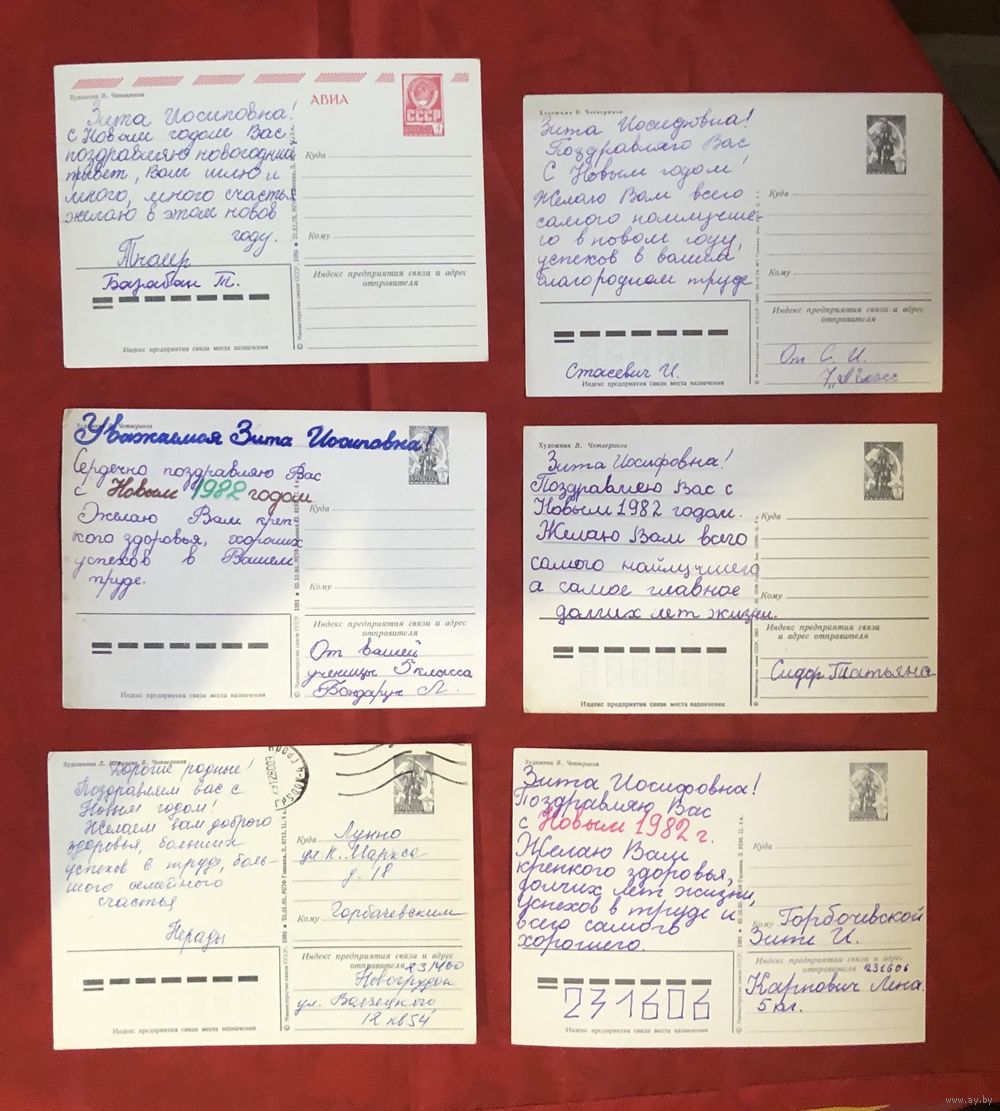 Художник В. Четвериков
АВИА
СССР
Зита Иосиповна!
С Новым годом Вас
поздравляю новогодний
привет, Вам шлю и
много, много счастья
желаю в этом новов
году.
Базабан Т.
Куда
Кому
Индекс предприятия связи и адрес
отправителя
Индекс предприятия связи места назначения
Художник В. Четвериков
Зита Иосифовна!
Поздравляю Вас
С Новым годом!
Желаю Вам всего
самого наилучше-
го в новом году,
успехов в вашем
благородном труде
Куда
Кому
Индекс предприятия связи и адрес
отправителя
От С. И.
7 „А" класс
Стасевич И.
Индекс предприятия связи места назначения
Уважаемая Зита Иосиповна!
Сердечно поздравляю Вас
с Новым 1982 годом
Желаю Вам креп-
кого здоровья, хороших
успехов в Вашем
труде.
Куда
Кому
Индекс предприятия связи и адрес
отправителя
От вашей
ученицы 5 класса
Бондарук Л.
Индекс предприятия связи места назначения
Художник В. Четвериков
Зита Иосифовна!
Поздравлею Вас с
Новым 1982 годом.
Желаю Вам всего
самого найлучшего
а самое главное
долгих лет жизни.
Куда
Кому
Индекс предприятия связи
и адрес отправителя
Сидор Татьяна
Индекс предприятия связи места назначения
Дорогие родные!
Поздравляем вас с
Новым годом!
Желаем вам доброго
здоровья, больших
успехов в труде, боль-
шого семейного
счастья
Нерады
Куда Лунно
ул К. Маркса
д. 18
Кому Горбачевским
Индекс предприятия связи и адрес
отправителя 231400
Новогрудок
ул. Волчецкого
12 кв 54
Индекс предприятия связи места назначения
Художник В. Четвериков
Зита Иосифовна!
Поздравляю Вас
с Новым 1982 г.
Желаю Вам
крепкого здоровья,
долгих лет жизни,
успехов в труде и
всего самого
хорошего.
Куда
Кому Горбочевской
Зите И.
Индекс предприятия связи и адрес
отправителя 231606
Карпович Лена.
5 кл.
231606
Индекс предприятия связи места назначения
www.ay.by